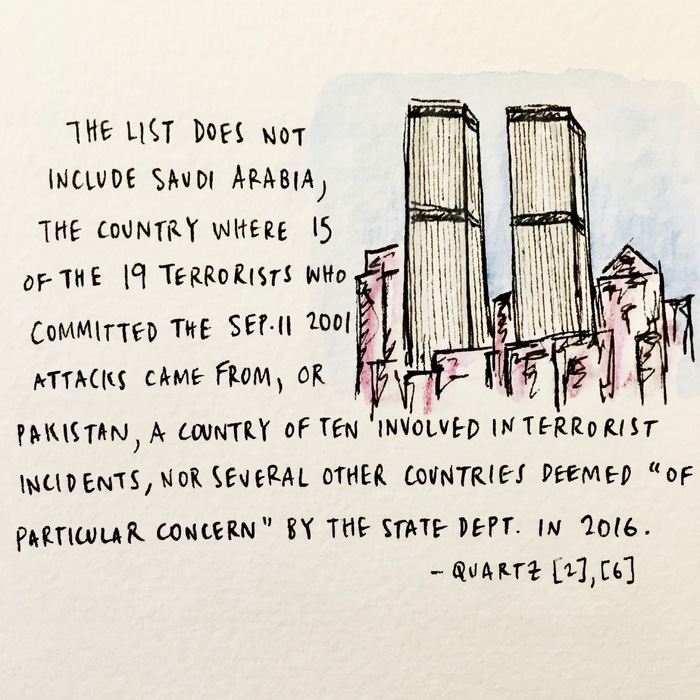 THE LIST DOES NOT
INCLUDE SAUDI ARABIA,
THE COUNTRY WHERE 15
OF THE 19 TERRORISTS WHO
COMMITTED THE SEP.11 2001
ATTACKS CAME FROM, OR
PAKISTAN, A COUNTRY OFTEN INVOLVED IN TERRORIST
INCIDENTS, NOR SEVERAL OTHER COUNTRIES DEEMED "OF
PARTICULAR CONCERN" BY THE STATE DEPT. IN 2016.
- QUARTZ [2],[6]